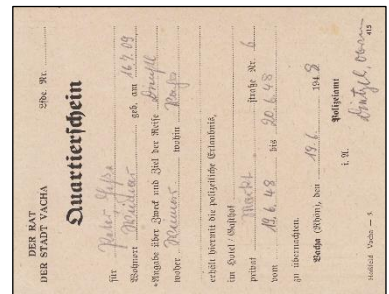 DER RAT
DER STADT VACHA Lfde. Nr.
Quartierschein
für Peter
Wohnort geb. am 16.7.09
*Angabe über Zweck und Ziel der Reise
woher wohin
erhält hiermit die polizeiliche Erlaubnis,
im Hotel / Gasthof
privat Markt straße Nr. 6
vom 19.6.48 bis 20.6.48
zu übernachten.
Vacha (Rhön), den 19.6. 1948
Polizeiamt
i. A.
Hoßfeld Vacha — 415